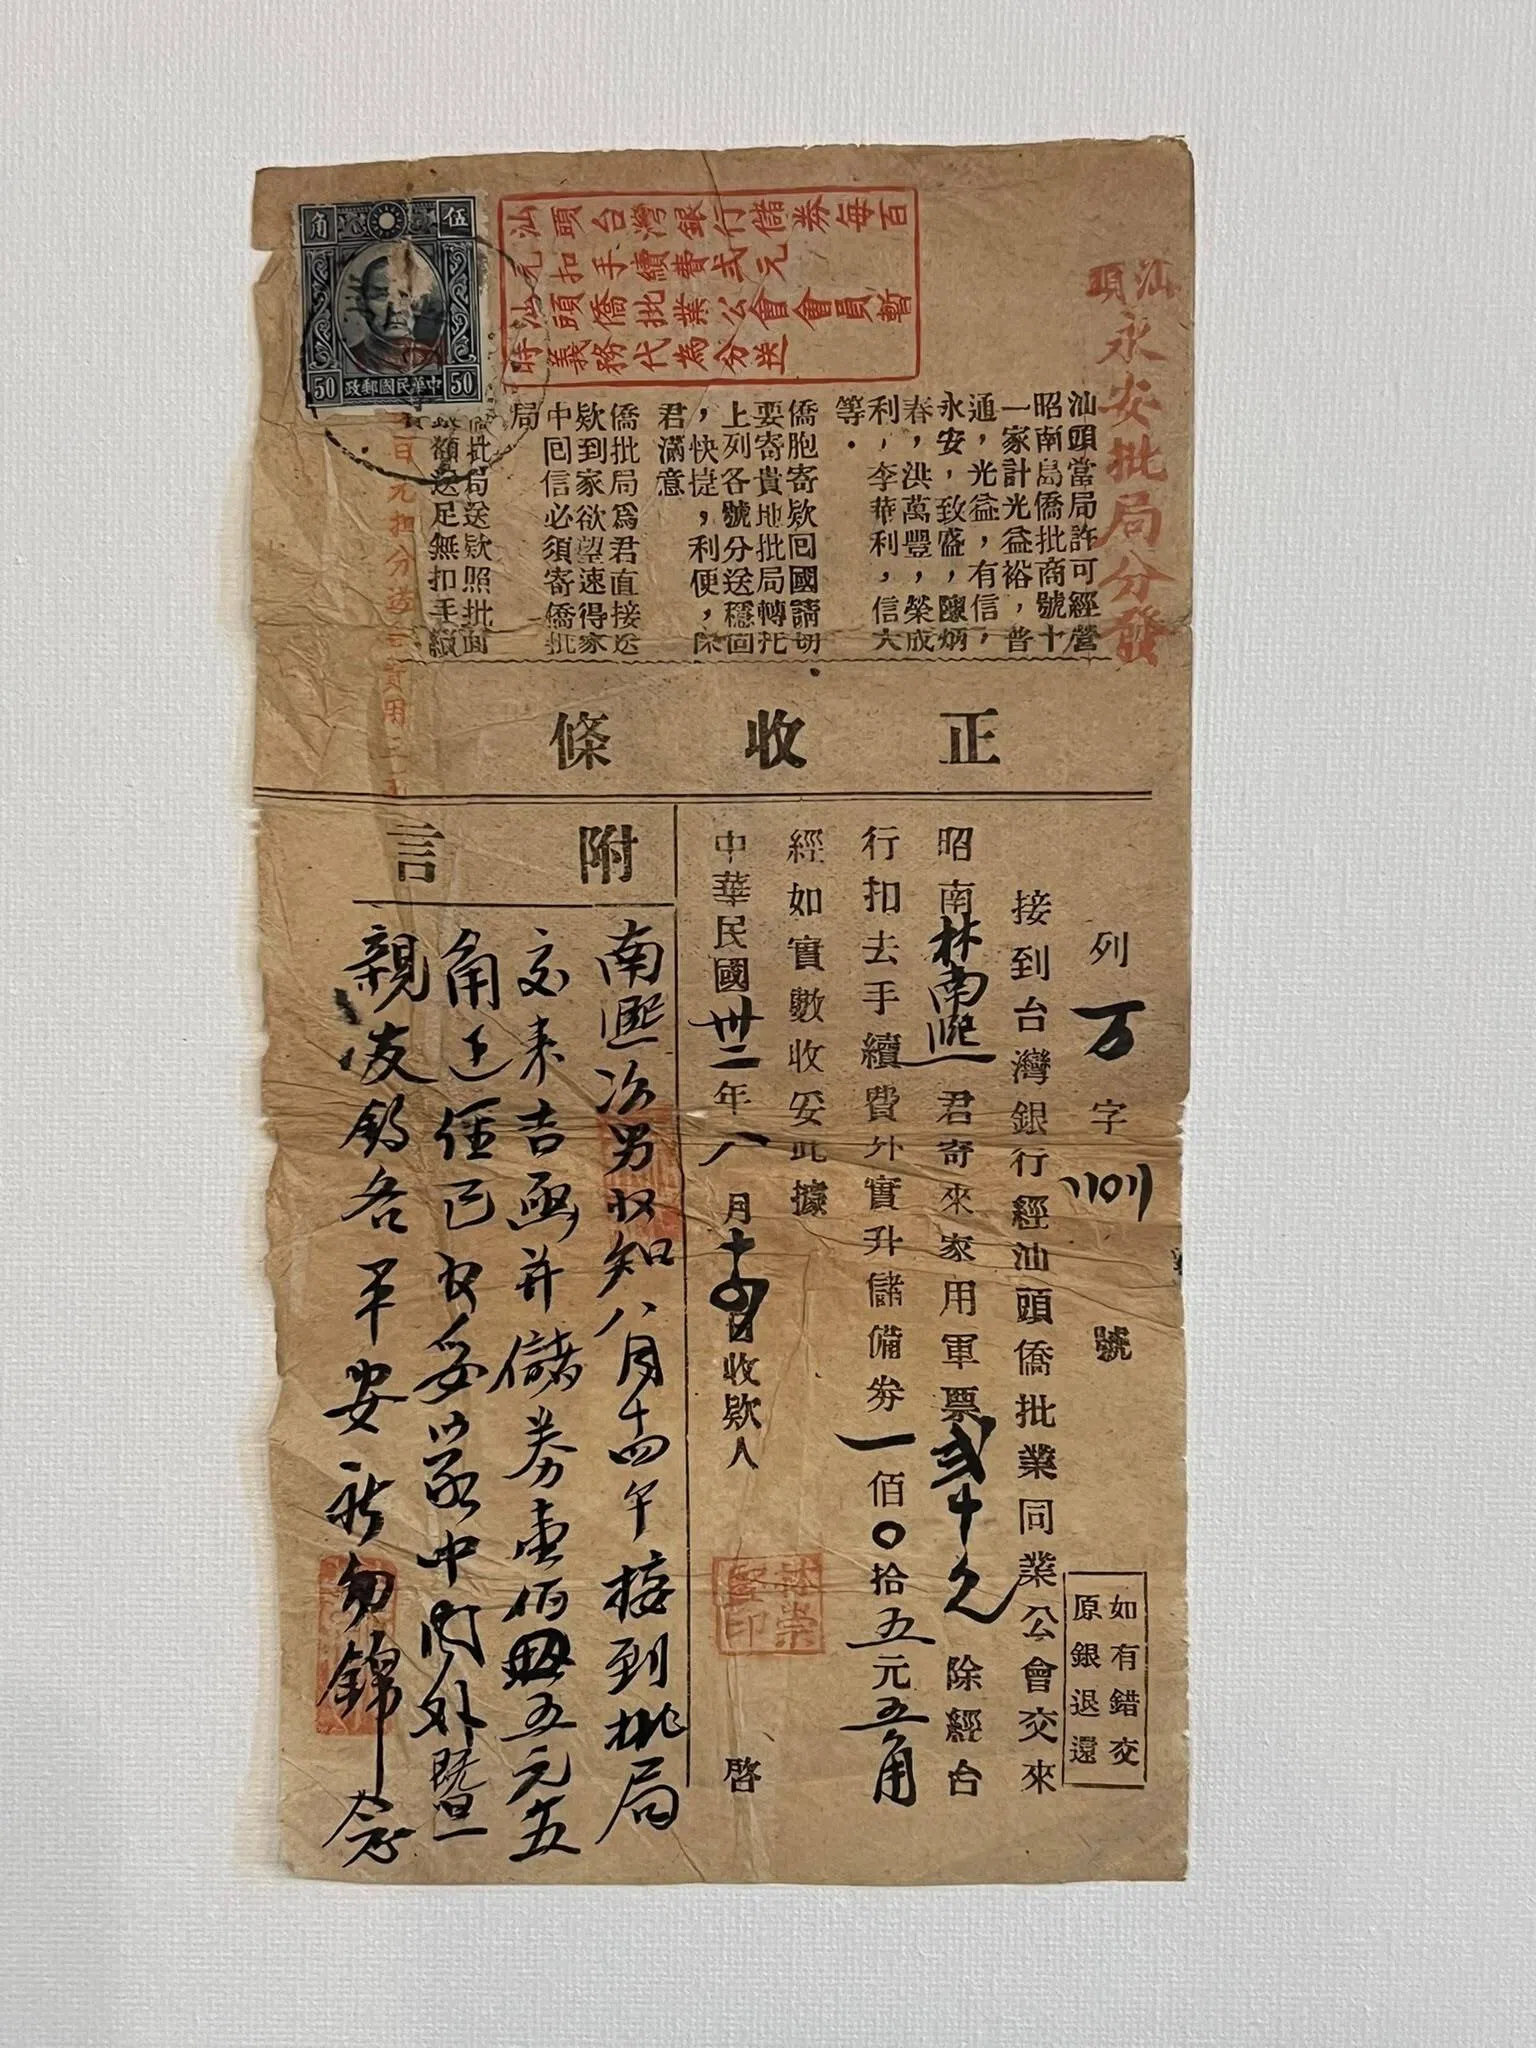 汕頭
永安批局分發
汕頭台灣銀行儲券每百
元扣手續費弍元
汕頭僑批業公會會員暫
時義務代為分送
伍角
50 中華民國郵政 50
汕頭當局許可經營
昭南島僑批商號十
一家計光益裕，普
通，光益，有信，
永安，致盛，陳炳
春，洪萬豐，榮成
利，李華利，信大
等．
僑胞寄欵回國請切
要寄貴地批局轉托
上列各號分送穩固
，快捷，利便，保
君滿意
僑批局爲君直接送
欵到家欲望速得家
中回信必須寄僑批
局
批局送欵照批面
額送足無扣手續
百元扣分送
正收條
列万字〢〡〇〢號
如有錯交
原銀退還
接到台灣銀行經汕頭僑批業同業公會交來
昭南林南熙君寄來家用軍票弍十元除經台
行扣去手續費外實升儲備券一佰〇拾五元五角
經如實數收妥此據
中華民國卅二年八月十四日收欵人 啓
林崇
印
附言
南熙次男收知八月十四午接到批局
交來吉函并儲券壹佰〇五元五
角正經已收妥以家中內外暨
親友均各平安祈勿錦念